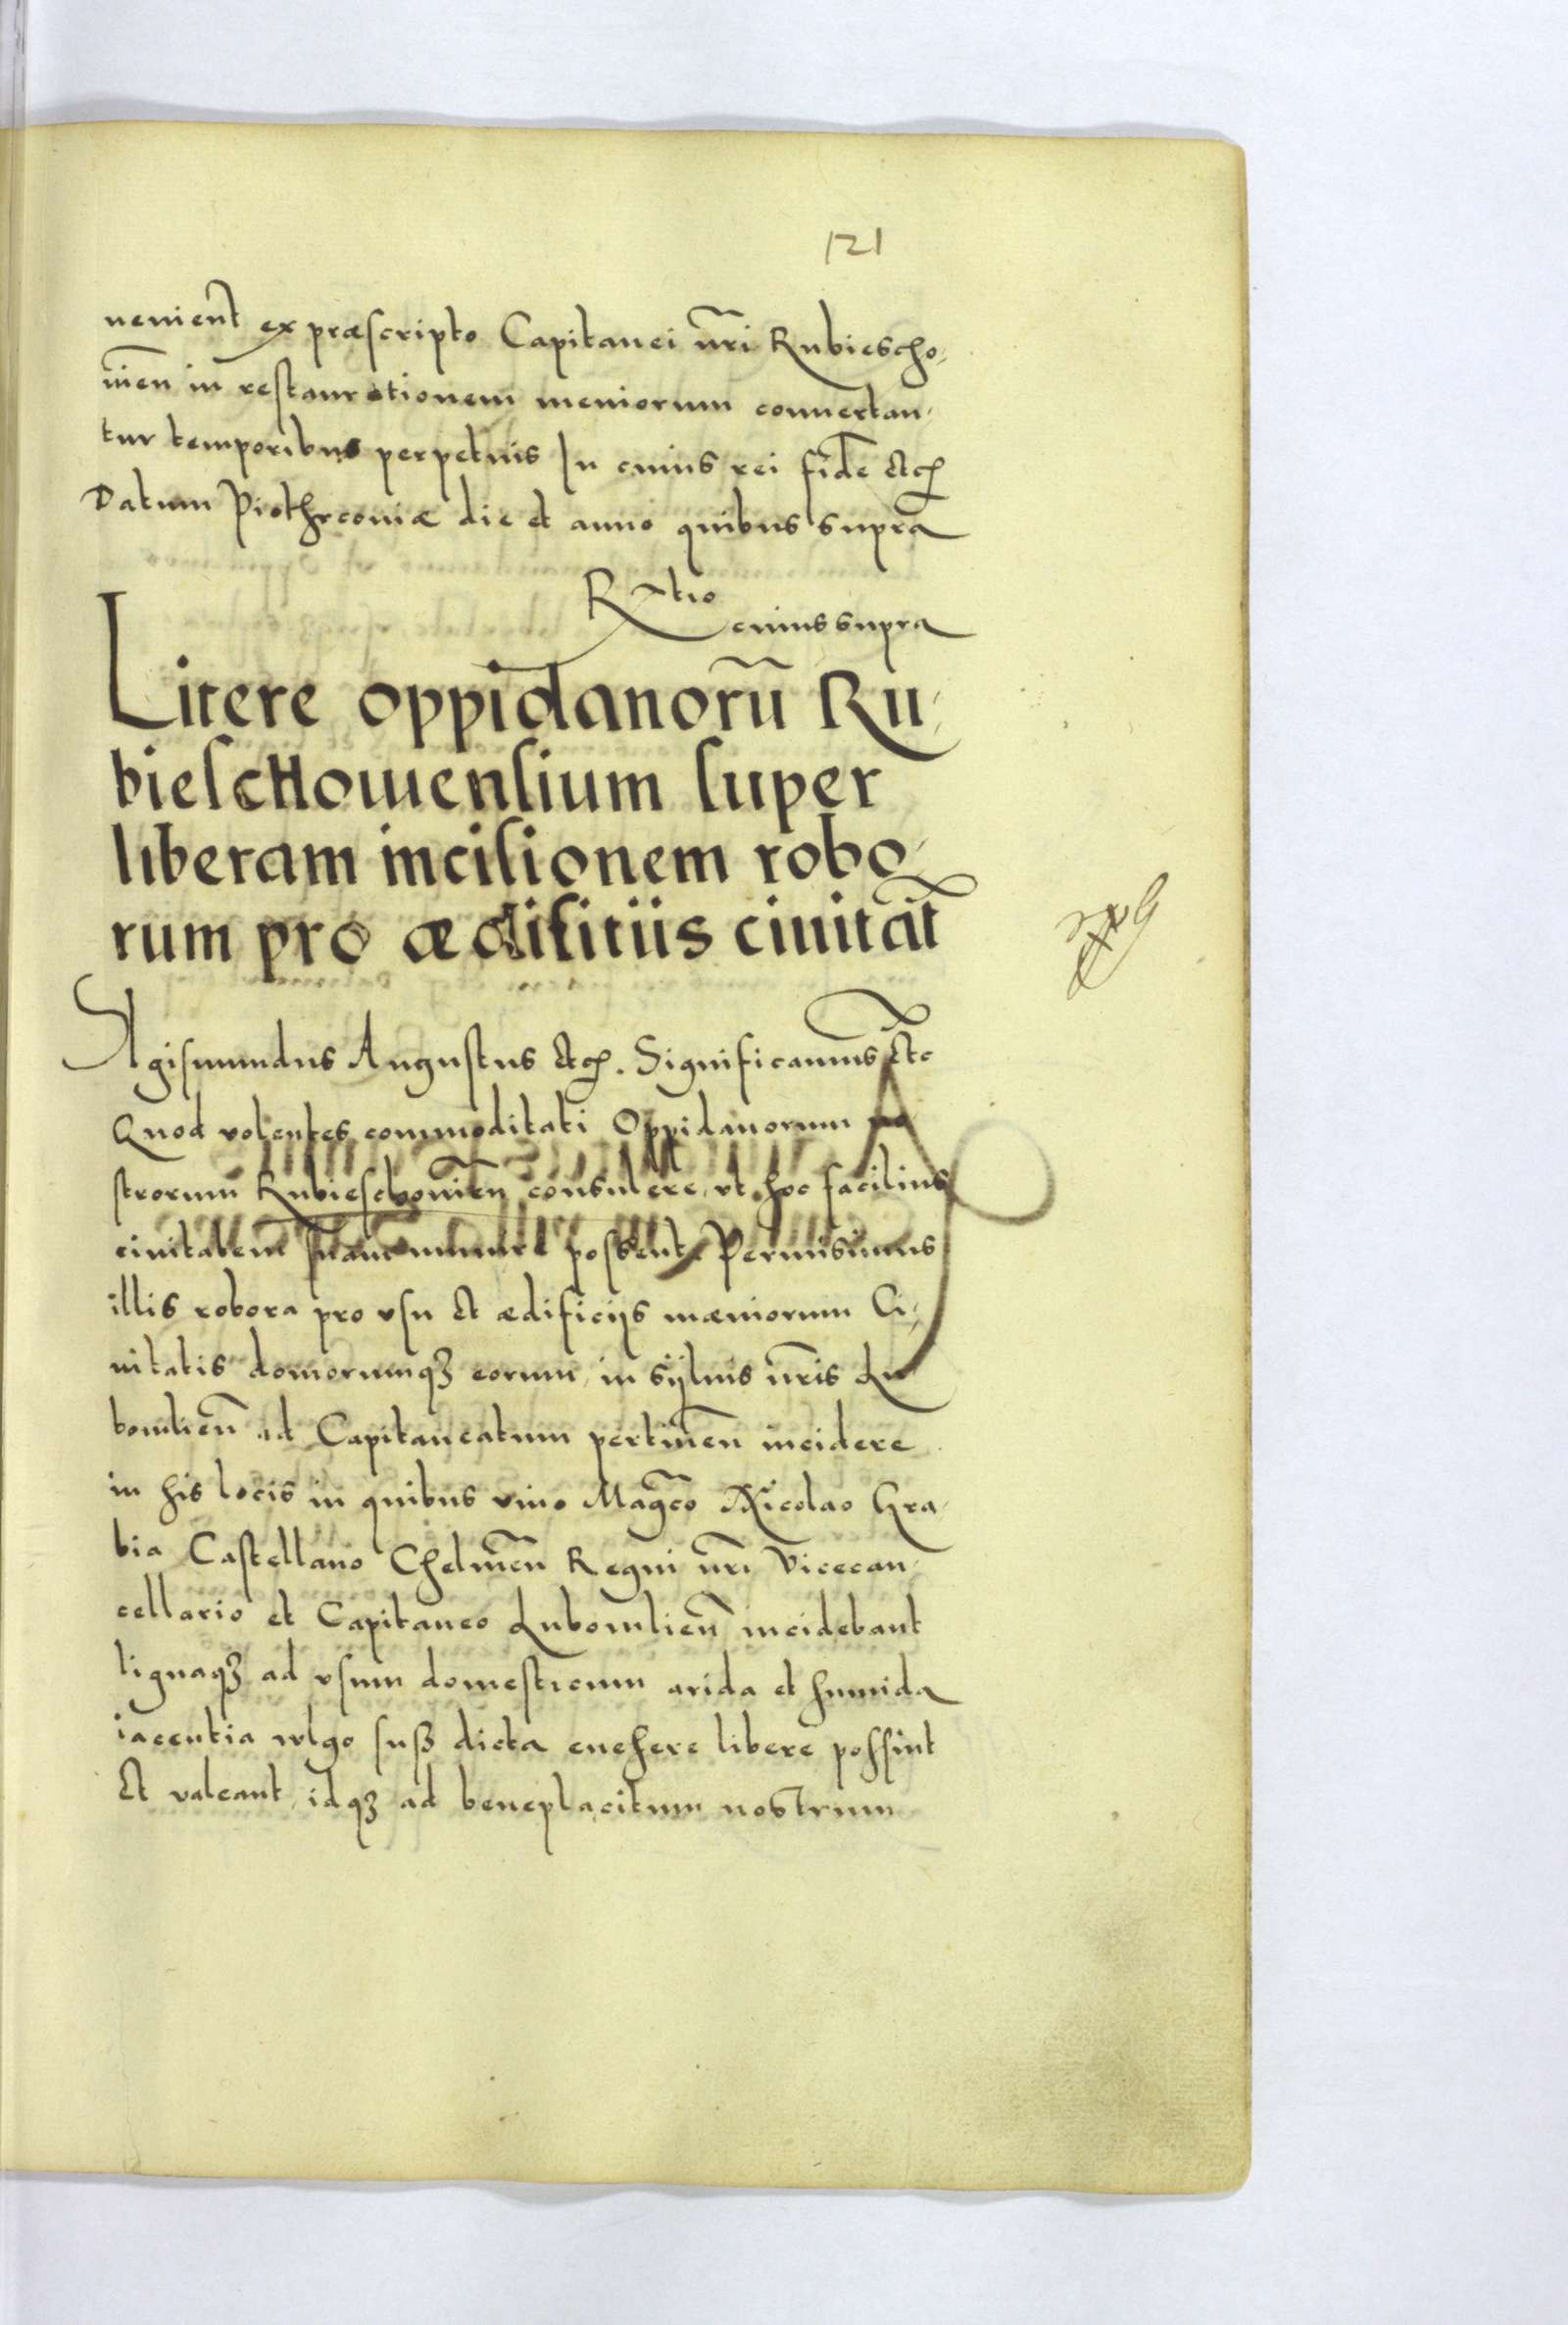 121
uenient ex præscripto Capitanei nr̃i Rubiescho,
uien̄ in restaurationem meniorum conuertan,
tur temporibus perpetuis In cuius rei fidē etc
Datum Piothrconiæ die et anno quibus supra
R̃tio
cuius supra
Litere oppidanorū Ru,
bieschouiensium super
liberam incisionem robo,
rum pro ædifitiis ciuitat̄
Sigismundus Augustus etc. Significamus etc
Quod volentes commoditati Oppidanorum no
strorum Rubieschouien̄ consulere, vt hoc facilius
ciuitatem suam munire possent, Permisimus
illis robora pro vsu et ædificijs mæniorum Ci,
uitatis domorumqȝ eorum, in syluis nr̃is Lu
bomlien̄ ad Capitaneatum pertinen̄ incidere
in his locis in quibus viuo Magco Nicolao Gra,
bia Castellano Chelmen̄ Regni nr̃i Vicecan,
cellario et Capitaneo Lubomlien̄ incidebant
lignaqȝ ad vsum domesticum arida et humida
iacentia wlgo susz dicta euehere libere possint
et valeant, idqȝ ad beneplacitum nostrum